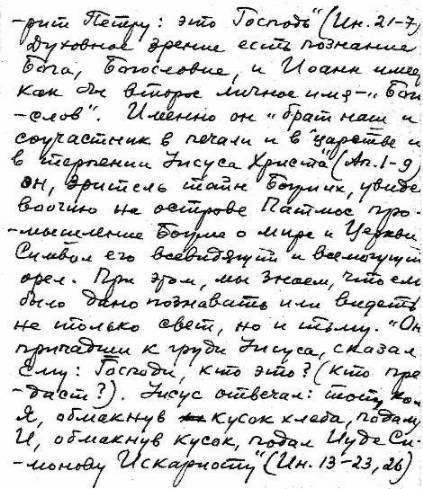 -рит Петру: это Господь" (Ин. 21-7)
Духовное зрение есть познание
Бога, Богословие, и Иоанн имее
как бы второе личное имя-"Бого
-слов". Именно он "брат наш и
соучастник в печали и в "царстве и
в терпении Иисуса Христа" (Ап. 1-9)
он, зритель тайн Божиих, увиде
воочию на острове Патмос про-
-мышление Божие о мире и Церкви.
Символ его всевидящий и всемогущий
орел. При этом, мы знаем, что ем
было дано познавать или видеть
не только свет, но и тьму. "Он
припадши к груди Иисуса, сказал
Ему: Господи, кто это? (кто пре
-даст?). Иисус отвечал: тот, ко
Я, обмакнув кусок хлеба, подам
И, обмакнув кусок, подал Иуде Си-
-монову Искариоту" (Ин. 13-23,26)